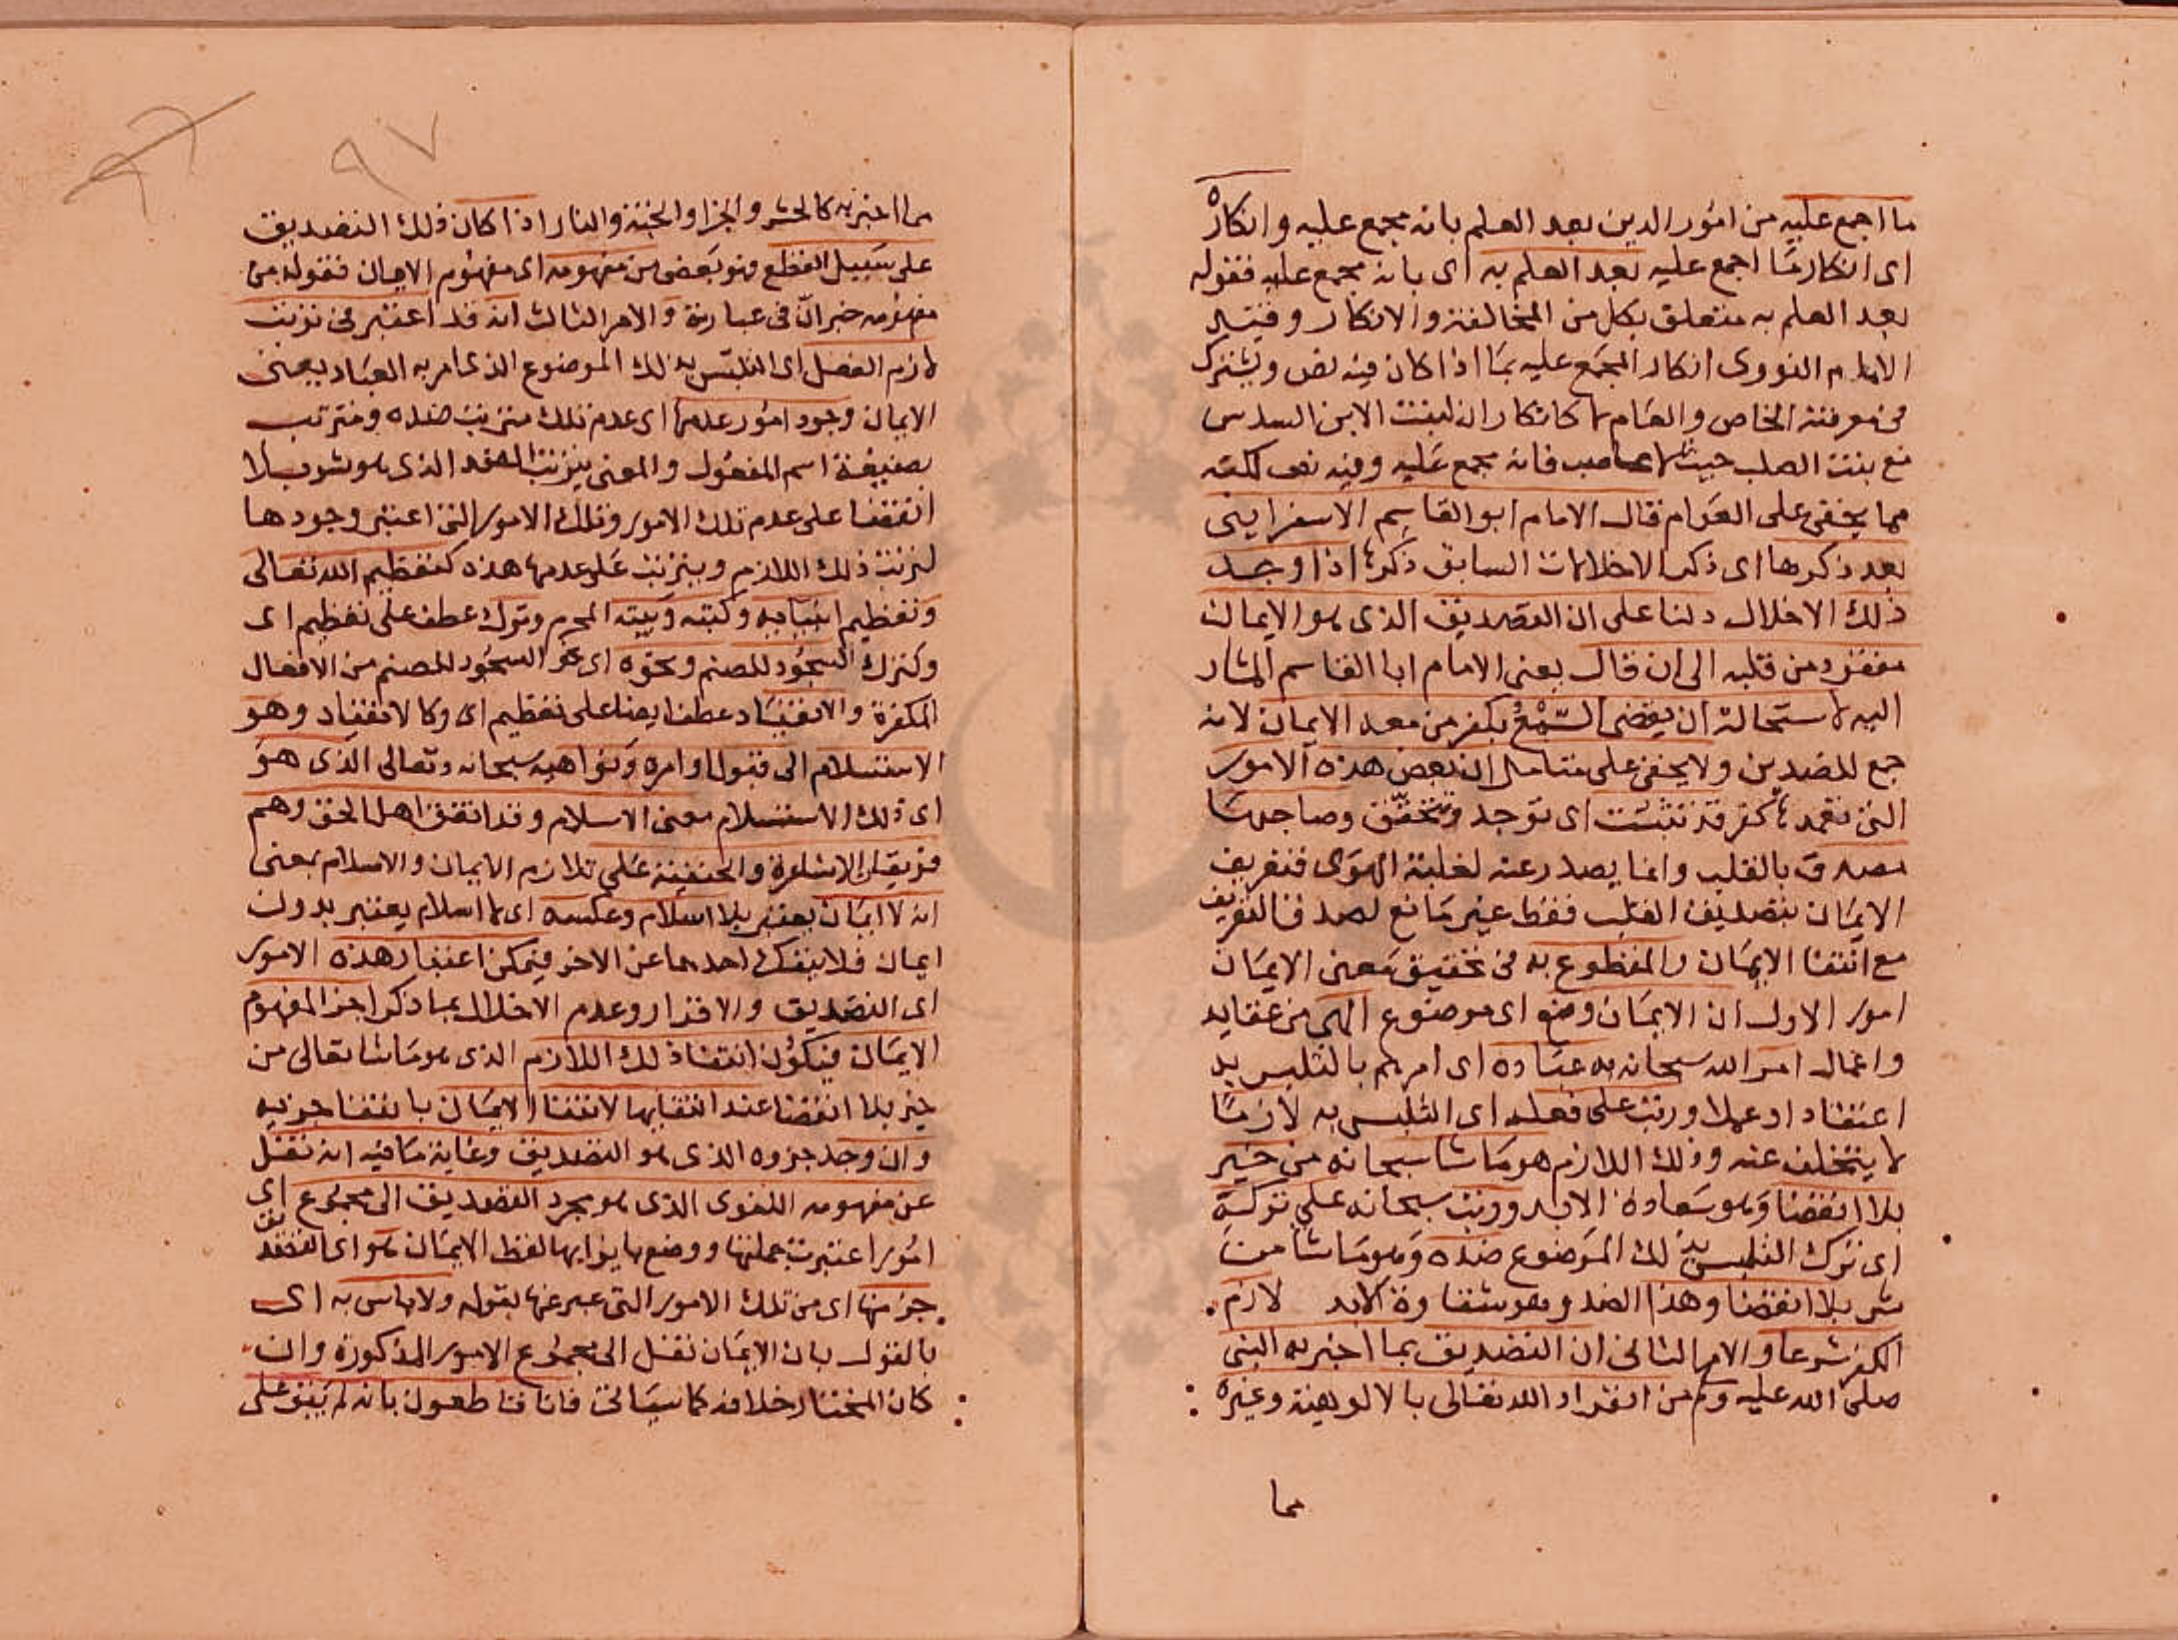 ما اجمع عليه من امور الدين بعد العلم بانه مجمع عليه وانكاره
اى انكار ما اجمع عليه بعد العلم به اى بانه مجمع عليه فقوله
بعد العلم به متعلق بكل من المخالفة والانكار وقيد
الامام النووى انكار المجمع عليه بما اذا كان فيه نص ويشترك
فى معرفته الخاص والعام لا كانكار ان لبنت الابن السدس
مع بنت الصلب حيث لا عاصب فانه مجمع عليه وفيه نص لكنه
مما يخفى على العوام قال الامام ابو القاسم الاسفراينى
بعد ذكرها اى ذكر الاخلالات السابق ذكرها اذا وجد
ذلك الاخلال دلنا على ان التصديق الذى هو الايمان
مفقود من قلبه الى ان قال يعنى الامام ابا القاسم المشار
اليه لاستحالة ان يقضى السمع بكفر من معه الايمان لانه
جمع للضدين ولا يخفى على متامل ان بعض هذه الامور
التى تعمدها كفر قد تثبت اى توجد وتتحقق وصاحبها
مصدق بالقلب وانما يصدر عنه لغلبة الهوى فتعريف
الايمان بتصديق القلب فقط غير مانع لصدق التعريف
مع انتفا الايمان والمقطوع به فى تحقيق معنى الايمان
امور الاول ان الايمان وضع اى موضوع الهى من عقايد
واعمال امر الله سبحانه به عباده اى امرهم بالتلبس به
اعتقادا وعملا ورتب على فعله اى التلبس به لازما
لا يتخلف عنه وذلك اللازم هو ما شا سبحانه من خير
بلا انقضا وهو سعادة الابد ورتب سبحانه على تركه
اى ترك التلبس بذلك الموضوع ضده وهو ما شا من
شر بلا انقضا وهذا الضد وهو شقاوة الابد لازم
الكفر شرعا والامر الثانى ان التصديق بما اخبر به النبى
صلى الله عليه وم من انفراد الله تعالى بالالوهية وغيره
مما
٩٧
مما اخبر به كالحشر والجزا والجنة والنار اذا كان ذلك التصديق
على سبيل القطع فهو بعض من مفهومه اى مفهوم الايمان فقوله من
مفهومه خبر ان فى عبارته والامر الثالث انه قد اعتبر فى ترتيب
لازم الفعل اى التلبس بذلك الموضوع الذى امر به العباد يعنى
الايمان وجود امور عدمها اى عدم تلك مترتب ضده ومترتب
بصيغة اسم المفعول والمعنى يترتب الضد الذى هو شر بلا
انقضا على عدم تلك الامور وتلك الامور التى اعتبر وجودها
لترتب ذلك اللازم ويترتب على عدمها هذه كتعظيم الله تعالى
وتعظيم انبيايه وكتبه وبيته المحرم وترك عطف على تعظيم اى
وكترك السجود للصنم ونحوه اى نحو السجود للصنم من الافعال
المكفرة والانقياد عطف ايضا على تعظيم اى وكالانقياد وهو
الاستسلام الى قبول اوامره ونواهيه سبحانه وتعالى الذى هو
اى ذلك الاستسلام معنى الاسلام وقد اتفق اهل الحق وهم
فريقان الاشاعرة والحنفية على تلازم الايمان والاسلام بمعنى
انه لا ايمان يعتبر بلا اسلام وعكسه اى لا اسلام يعتبر بدون
ايمان فلا ينفك احدهما عن الاخر فيمكن اعتبار هذه الامور
اى التصديق والاقرار وعدم الاخلال بما ذكر اجزا لمفهوم
الايمان فيكون انتفا ذلك اللازم الذى هو ما شا تعالى من
خير بلا انقضا عند انتفايها لانتفا الايمان بانتفا جزيه
وان وجد جزوه الذى هو التصديق وغاية ما فيه انه نقل
عن مفهومه اللغوى الذى هو مجرد التصديق الى مجموع اى
امور اعتبرت جملتها ووضع بازايها لفظ الايمان هو اى التصديق
جز منها اى من تلك الامور التى عبر عنها بقوله ولا باس به اى
بالقول بان الايمان نقل الى مجموع الامور المذكورة وان
كان المختار خلافه كما سياتى فانا قاطعون بانه لم يبق على